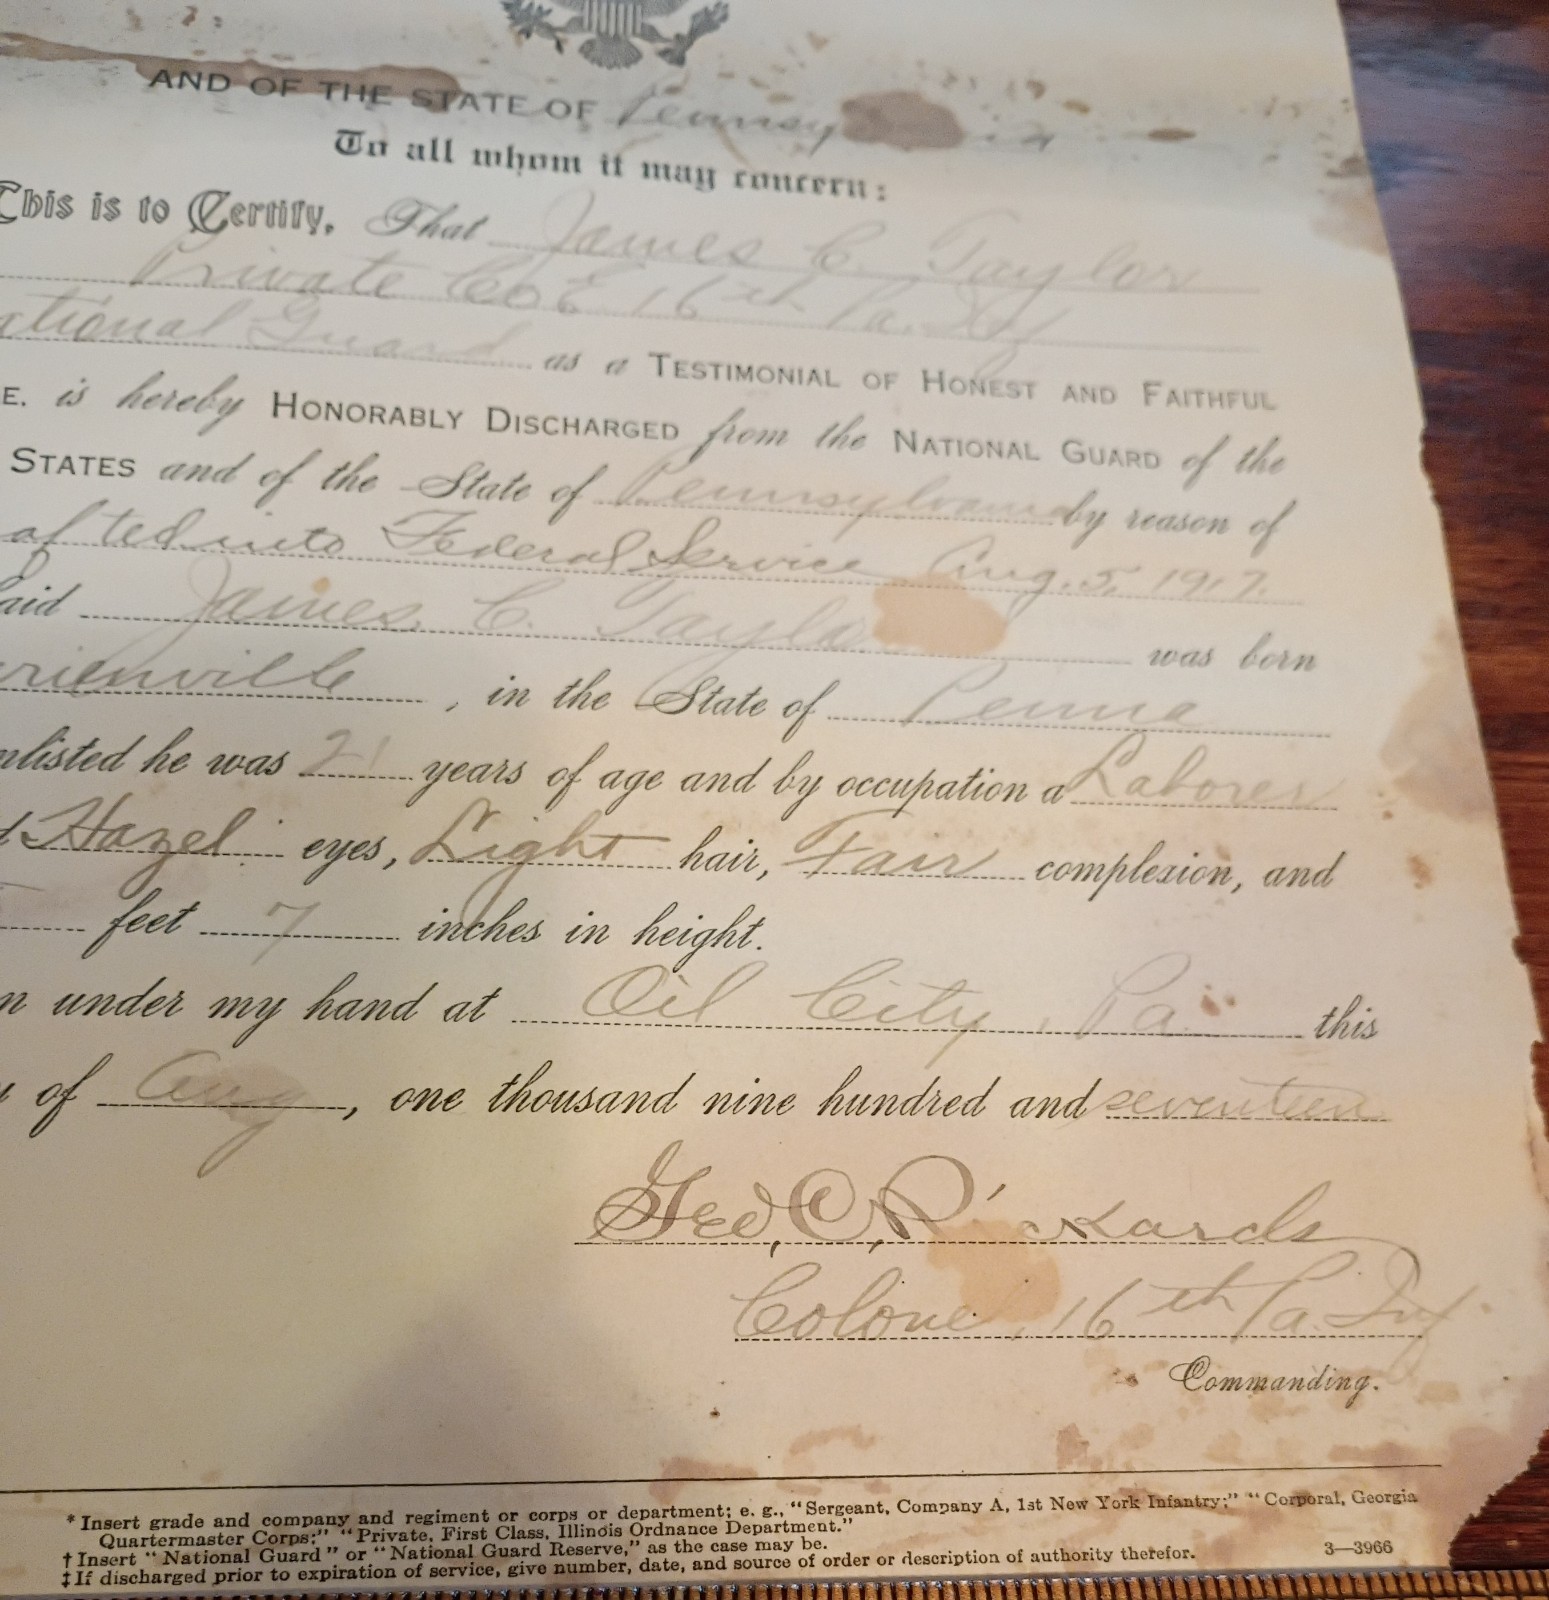 AND OF THE STATE OF Pennsy
To all whom it may concern:
This is to Certify, That James C. Taylor
Private Co E 16th Pa. Inf
ational Guard as a TESTIMONIAL OF HONEST AND FAITHFUL
E. is hereby HONORABLY DISCHARGED from the NATIONAL GUARD of the
STATES and of the State of Pennsylvania by reason of
afted into Federal Service Aug. 5, 1917.
aid James C. Taylo was born
rienville, in the State of Penna
nlisted he was 21 years of age and by occupation a Laborer
d Hazel eyes, Light hair, Fair complexion, and
feet 7 inches in height.
n under my hand at Oil City, Pa. this
y of Aug, one thousand nine hundred and seventeen
Geo, C, Rickards
Colonel, 16th Pa. Inf
Commanding.
* Insert grade and company and regiment or corps or department; e. g., "Sergeant, Company A, 1st New York Infantry;" "Corporal, Georgia
Quartermaster Corps;" "Private, First Class, Illinois Ordnance Department."
† Insert "National Guard" or "National Guard Reserve," as the case may be.
‡ If discharged prior to expiration of service, give number, date, and source of order or description of authority therefor.
3—3966